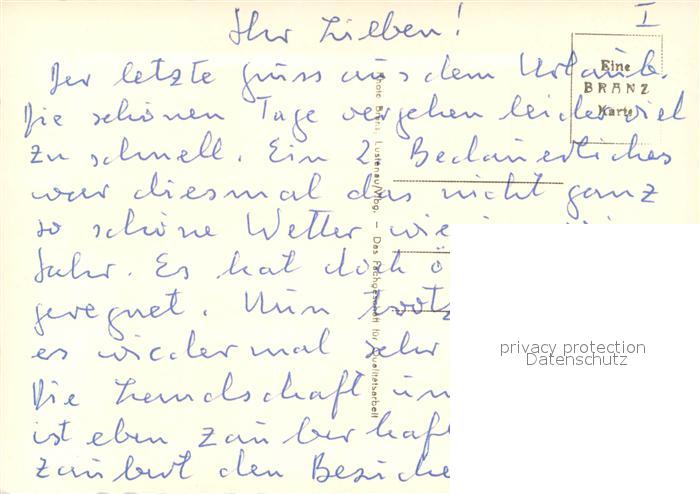 I
Ihr Lieben!
Der letzte Gruss aus dem Urlaub.
Die schönen Tage vergehen leider viel
zu schnell. Ein 2. Bedauerliches
war diesmal das nicht ganz
so schöne Wetter wie
Jahr. Es hat doch ö
geregnet. Nun trotz
es wieder mal sehr
Die Landschaft un
ist eben zauberhaft
zaubert den Besuche
Eine
BRANZ
Karte
Photo Branz, Lustenau/Vlbg. — Das Fachgeschäft für Qualitätsarbeit
privacy protection
Datenschutz